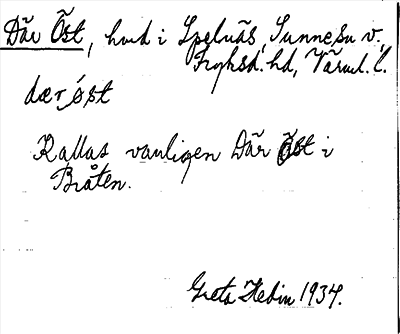 Där Öst, hmd i Spelnäs, Sunne sn v.
Fryksd. hd, Värml. l.
dær ǿst
Kallas vanligen Där Öst i
Bråten.
Greta Hedin 1934.